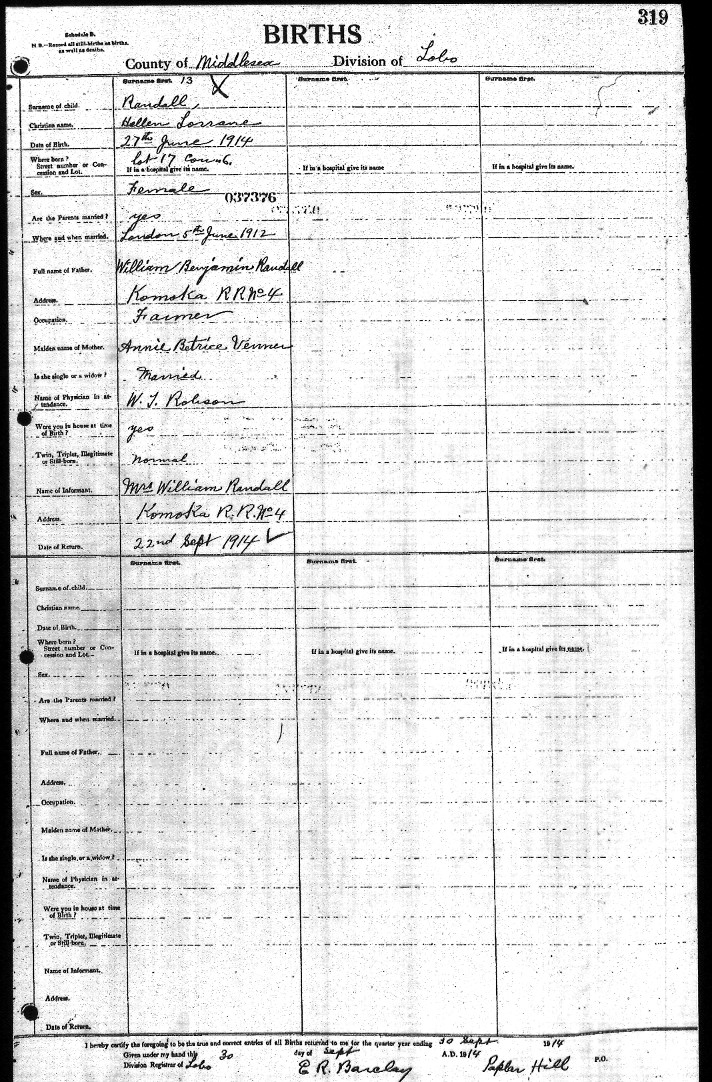 319
Schedule B.
N B.—Record all still-births as births, as well as deaths.
BIRTHS
County of Middlesex Division of Lobo
Surname first. 13 Surname first. Surname first.
Surname of child. Randall,
Christian name. Hellen Lorrane
Date of Birth. 27th June 1914
Where born?
Street number or Concession and Lot. lot 17 Con 6.
If in a hospital give its name. If in a hospital give its name If in a hospital give its name.
Sex. Female
037376
Are the Parents married? yes
Where and when married. London 5th June 1912
Full name of Father. William Benjamin Randall
Address. Komoka R R No 4
Occupation. Farmer
Maiden name of Mother. Annie Betrice Venner
Is she single or a widow? Married
Name of Physician in attendance. W. J. Robson
Were you in house at time of Birth? yes
Twin, Triplet, Illegitimate or Still-born. normal
Name of Informant. Mrs William Randall
Address. Komoka R. R. No 4
Date of Return. 22nd Sept 1914
Surname first. Surname first. Surname first.
Surname of child.
Christian name
Date of Birth.
Where born?
Street number or Concession and Lot.
If in a hospital give its name. If in a hospital give its name. If in a hospital give its name.
Sex.
Are the Parents married?
Where and when married.
Full name of Father.
Address.
Occupation.
Maiden name of Mother.
Is she single, or a widow?
Name of Physician in attendance.
Were you in house at time of Birth?
Twin, Triplet, Illegitimate or Still-born.
Name of Informant.
Address.
Date of Return.
I hereby certify the foregoing to be the true and correct entries of all Births returned to me for the quarter year ending 30 Sept 1914
Given under my hand this 30 day of Sept A.D. 1914
Division Registrar of Lobo E R. Barclay Poplar Hill P.O.